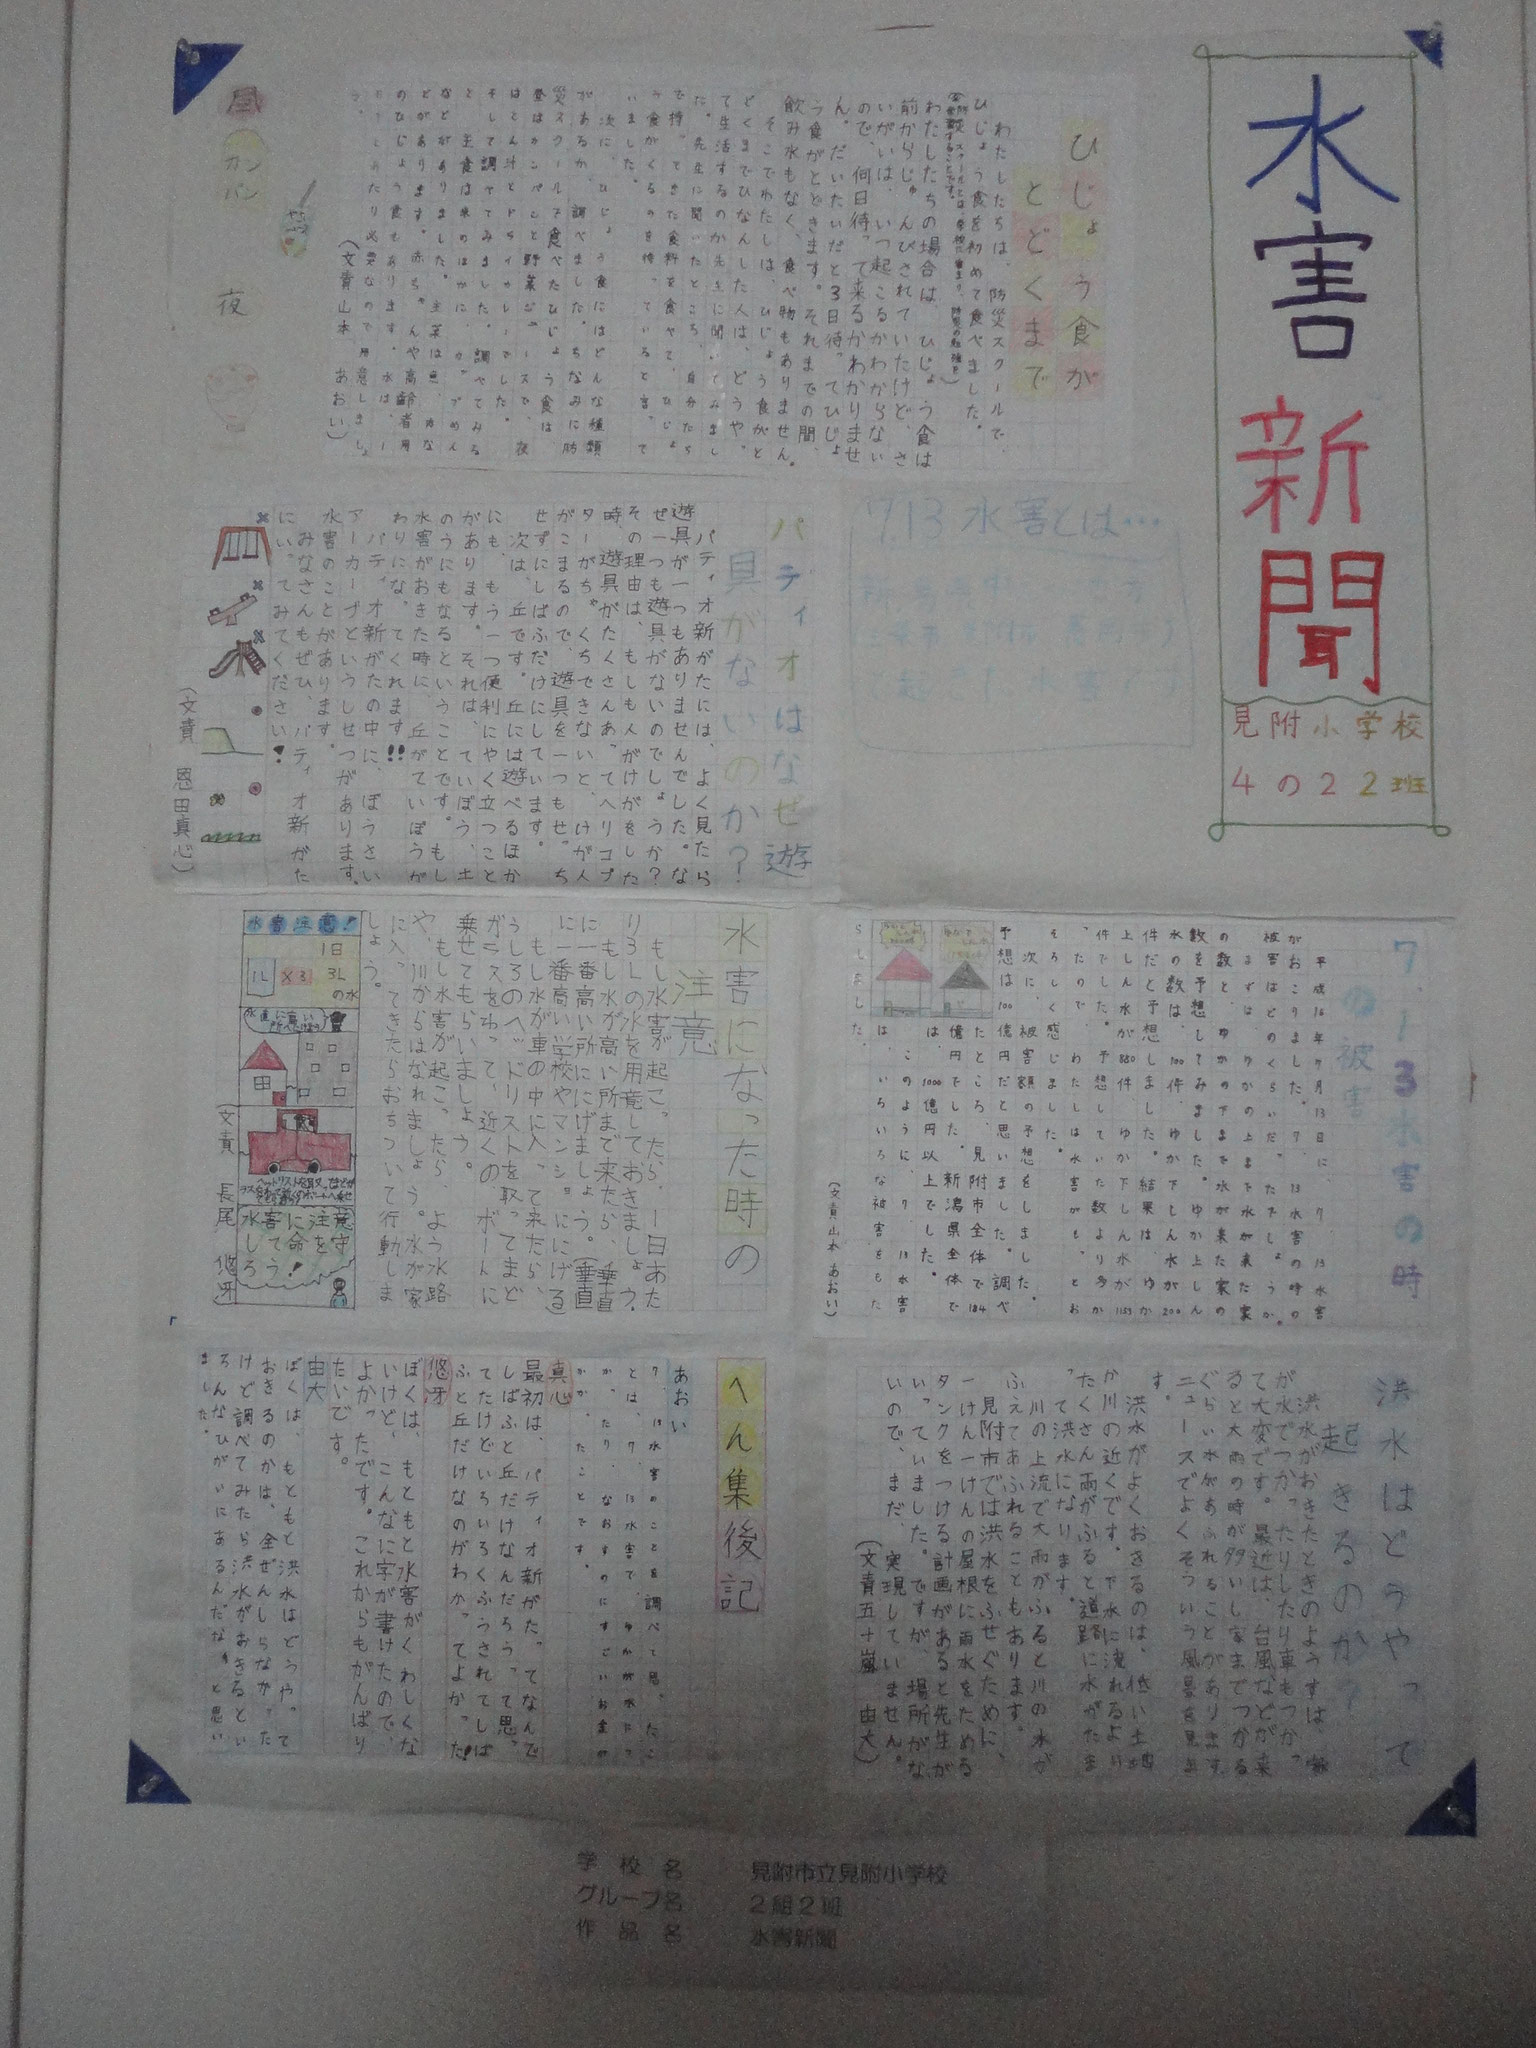 水害新聞
見附小学校
4の2 2班
ひじょう食が
とどくまで
わたしたちは、防災スクールで、
ひじょう食を初めて食べました。
わたしたちの場合は、ひじょう食は
前からじゅんびされていたけど、さ
いがいは、いつ起こるかわからない
ので、何日待って来るかわかりませ
ん。だいたいだと3日待ってひじょ
う食がとどきます。それまでの間、
飲み水もなく、食べ物もありません。
そこでわたしは、ひじょう食がと
どくまでひなんした人は、どうやっ
て生活するのか先生に聞いてみまし
た。先生に聞いたところ、自分たち
で持ってきた食料を食べて、ひじょ
う食がくるのを待っていると言って
いました。
次に、ひじょう食にはどんな種類
があるか、調べました。ちなみに防
災スクールで食べたひじょう食は
(文責山本 あおい)
昼
カンパン
夜
7.13水害とは…
パティオはなぜ遊
具がないのか?
パティオ新がたには、よく見たら
遊具が一つもありませんでした。な
ぜ一つも遊具がないのでしょうか?
その理由は、もしも人がけがをした
時、遊具がたくさんあってヘリコプ
ターがちゃくちできないと、けが人
がこまるので、遊具を一つもせっち
せずにしばふだけにしています。
次は、丘です。丘には遊べるほか
にも、もう一つ便利にやく立つこと
があります。それは、ていぼう、土
のうにもなるということです。もし
水害がおきた時に、丘がていぼうが
わりになってくれます!!
パティオ新がたの中に、ぼうさい
アーカーブというしせつがあります。
水害のことがあります。
みなさんもぜひ、パティオ新がた
にいってみてください!
(文責 恩田真心)
7.13水害の時
の被害
平成16年7月13日に、7.13水害
がおこりました。7.13水害の時の
被害はどのくらいだったでしょうか。
まずは、ゆかの上まで水が来た家
の数と、ゆかの下まで水が来た家の
数を予想してみました。ゆか上しん
水の数は、100件、ゆか下しん水が200
件だと予想しました。結果は、ゆか
上しん水が880件、ゆか下しん水が1153
件でした。予想していた数より多か
ったので、わたしは水害がもっとお
そろしく感じました。
次に、被害額の予想をしました。
予想は100億円だと思いました。調べ
たところ、見附市全体で184
億円でした。新潟県全体で
は、1000億円以上でした。
このように、7.13水害
は、いろいろな被害をもた
らしました。
(文責山本あおい)
水害になった時の
注意
もし水害が起こったら、一日あた
り3Lの水を用意しておきましょう。
もし水が高い所まで来たら、垂直
に一番高い所ににげましょう。(垂直
に一番高い学校やマンションににげる
もし水が車の中に入って来たら、
うしろのヘッドリストを取ってまど
ガラスをわって、近くのボートに
乗せてもらいましょう。
もし水害が起こったら、よう水路
や、川からはなれましょう。水が家
に入ってきたらおちついて行動しま
しょう。
水害注意!
1日
3L
の水
1L
×3
水害に注意
して命を守
ろう!
(文責 長尾 悠牙)
洪水はどうやって
起きるのか?
洪水がおきたときのようすは、家
が水でつかったりしたり車もつかっ
て大変です。最近は、台風などが来
ると大雨の時が多いし家までつかる
ぐらい水があふれることがあります。
ニュースでよくそういう風景を見ま
す。
洪水がよくおきるのは、低い土地
か川の近くです。下水に流れるより
たくさん雨がふると道路に水がたま
って洪水になります。
川の上流で大雨がふると川の水が
ふえてあふれることもあります。
見附市では洪水をふせぐために、
一けん一けんの屋根に雨水をためる
タンクをつける計画があると先生が
いっていました。ですが、場所がな
いので、まだ、実現していません。
(文責五十嵐 由大)
へん集後記
あおい
7.13水害のことを調べて思ったこ
とは、7.13水害で、ゆかが水につ
かったり、なおすのにすごいお金の
かかったことです。
真心
最初は、パティオ新がたってなんで
しばふと丘だけなんだろうって思っ
てたけどいろいろくふうされてしば
ふと丘だけなのがわかってよかった!
悠牙
ぼくは、もともと水害がくわしくな
いけど、こんなに字が書けたので、
よかったです。これからもがんばり
たいです。
由大
ぼくは、もともと洪水はどうやって
おきるのかは、全ぜんしらなかった
けど調べてみたら洪水がおきるとい
ろんなひがいにあるんだなぁと思い
ました。
学校名 見附市立見附小学校
グループ名 2組2班
作品名 水害新聞